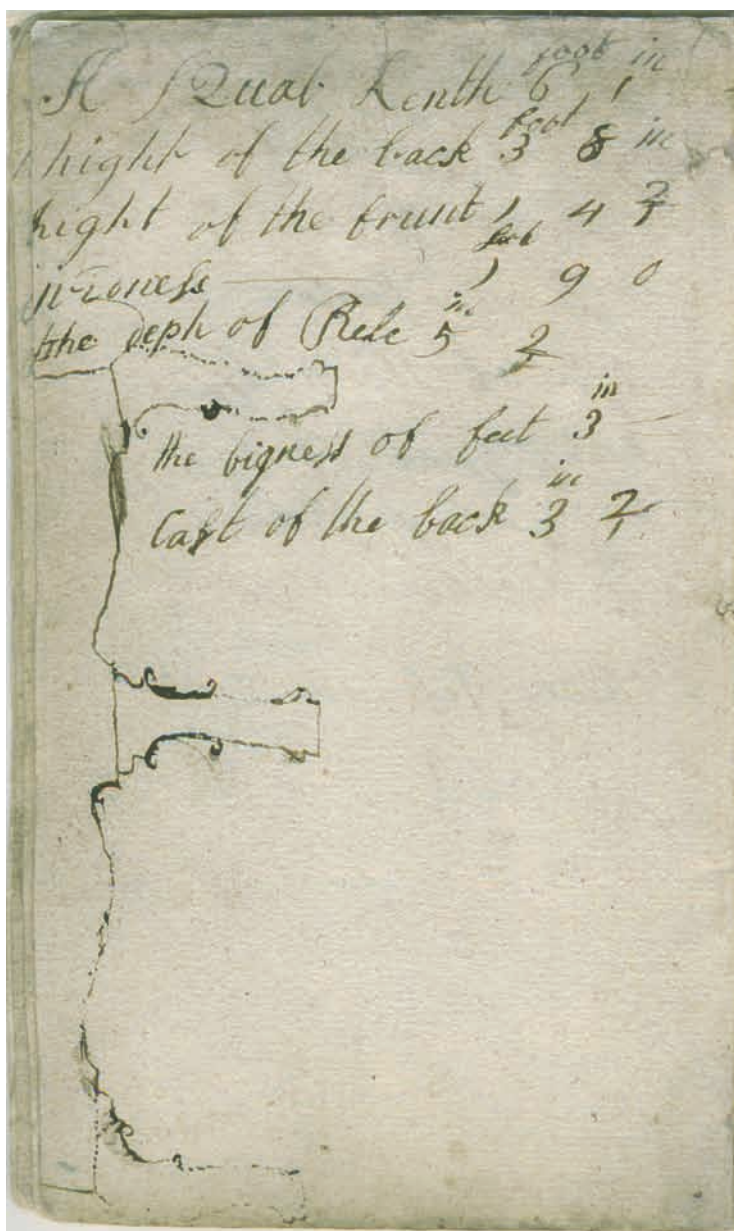 A SQuab Lenth 6 foot 1 in
hight of the back 3 foot 8 in
hight of the frunt 1 4 2/1
1 foot 9 0
the deph of Rele 5 in 2/1
the bigness of feet 3 in
Cast of the back 3 in 2/1